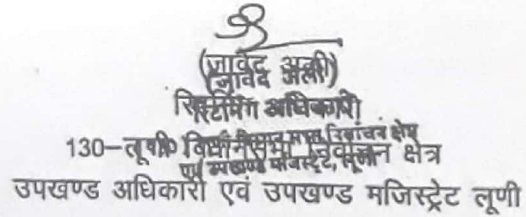 (जावेद अली)
रिटर्निंग अधिकारी
130-लूणी विधानसभा निर्वाचन क्षेत्र
उपखण्ड अधिकारी एवं उपखण्ड मजिस्ट्रेट लूणी